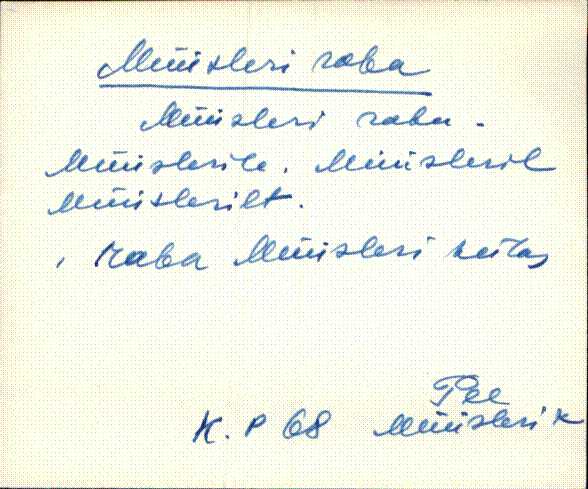 Müüsleri raba
Müüsleri raba -
Müüslerile. Müüsleril
Müüslerilt.
, raba Müüsleri
Pee
K. P 68 Müüsleri k